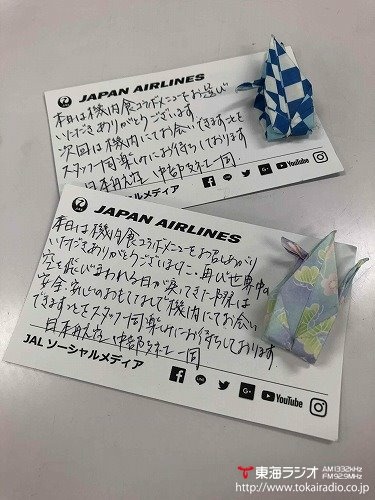 JAPAN AIRLINES
本日は機内食コラボメニューをお選び
いただきありがとうございます
次回は機内にてお会いできますことを
スタッフ一同楽しみにお待ちしております
日本航空 中部支社一同
ソーシャルメディア
YouTube
JAPAN AIRLINES
本日は機内食コラボメニューをお召しあがり
いただきありがとうございます!…再び世界中の
空を飛びまわれる日が戻ってきた
安全、安心のおもてなしで機内にてお会い
できますことをスタッフ一同楽しみにお待ちしております
日本航空 中部支社一同
JAL ソーシャルメディア
YouTube
東海ラジオ AM1332kHz FM92.9MHz
http://www.tokairadio.co.jp